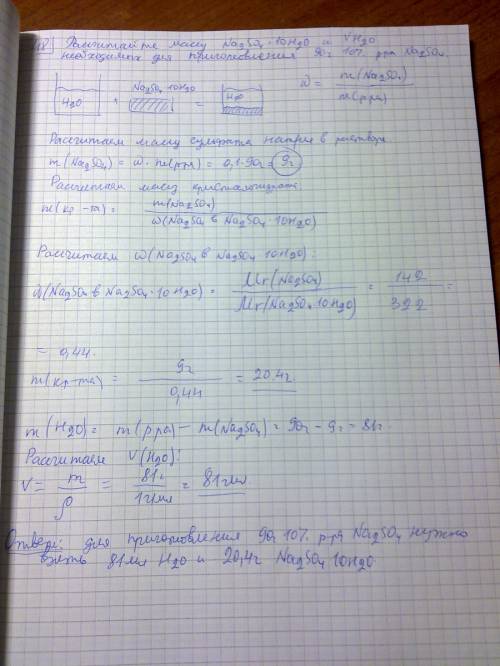 Рассчитайте массу Na₂SO₄·10H₂O и VH₂O
необходимых для приготовления 90г 10% р-ра Na₂SO₄.
H₂O + Na₂SO₄ 10H₂O = H₂O
ω = m(Na₂SO₄) / m(р-ра)
Рассчитаем массу сульфата натрия в растворе
m(Na₂SO₄) = ω · m(р-ра) = 0,1·90г = 9г
Рассчитаем массу кристаллогидрата
m(кр-та) = m(Na₂SO₄) / ω(Na₂SO₄ в Na₂SO₄·10H₂O)
Рассчитаем ω(Na₂SO₄ в Na₂SO₄ 10H₂O):
ω(Na₂SO₄ в Na₂SO₄·10H₂O) = Mr(Na₂SO₄) / Mr(Na₂SO₄ 10H₂O) = 142 / 322 =
= 0,44.
m(кр-та) = 9г / 0,44 = 20,4г.
m(H₂O) = m(р-ра) – m(Na₂SO₄) = 90г – 9г = 81г.
Рассчитаем V(H₂O):
V = m / ρ = 81г / 1г/мл = 81мл
Ответ: для приготовления 90г 10% р-ра Na₂SO₄ нужно
взять 81мл H₂O и 20,4г Na₂SO₄ 10H₂O.